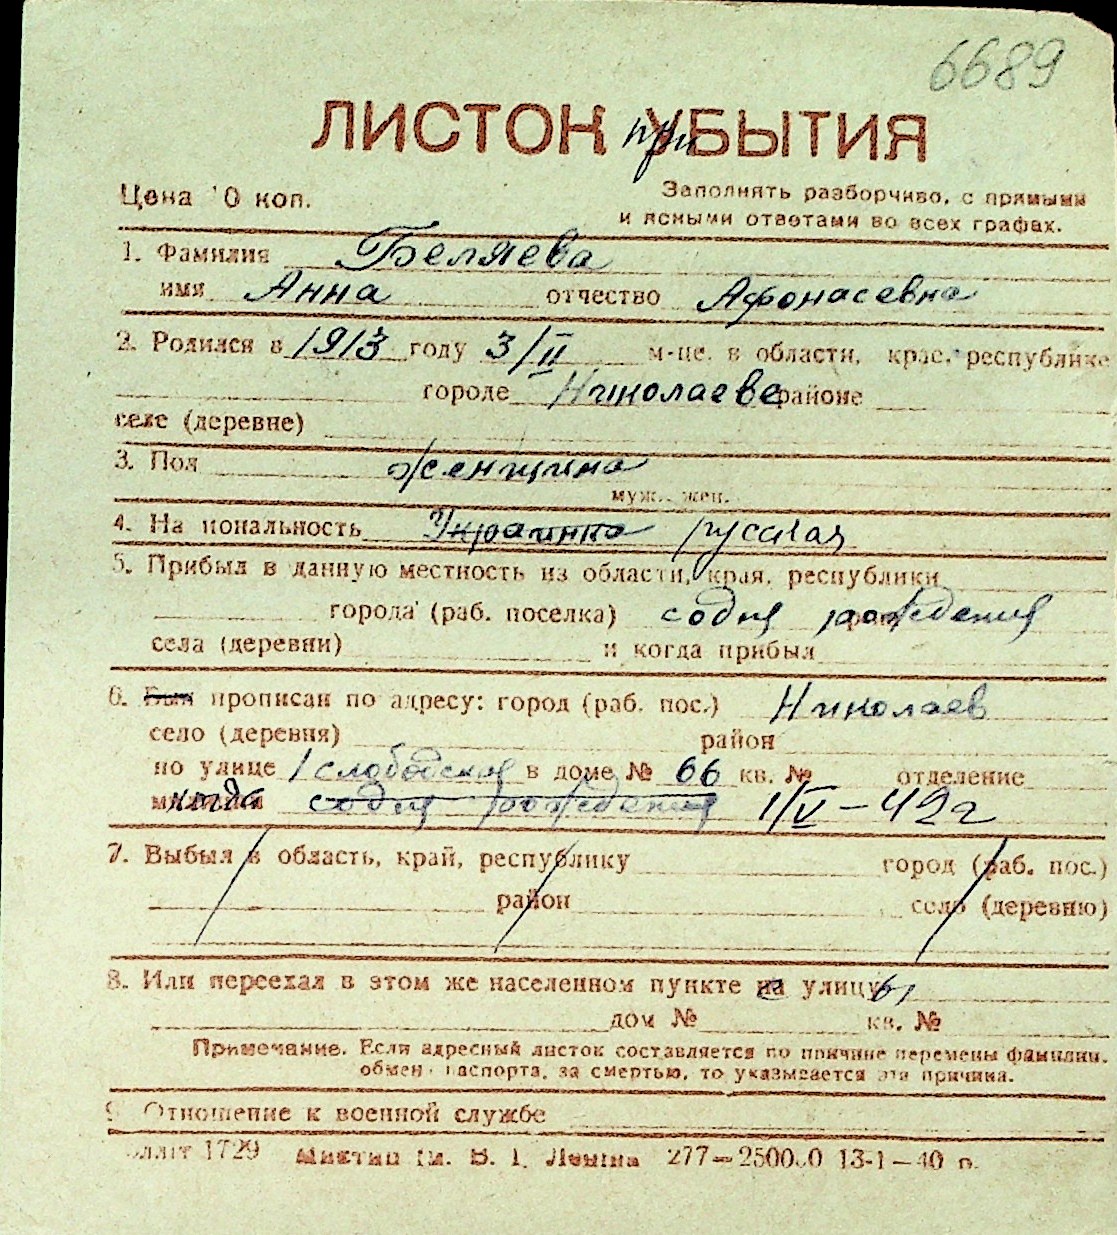 6689
ЛИСТОК при УБЫТИЯ
Цена 10 коп. Заполнять разборчиво, с прямыми
и ясными ответами во всех графах.
1. Фамилия Беляева
имя Анна отчество Афонасевна
2. Родился в 1913 году 3/II м-це, в области, крае, республике
городе Николаеве районе
селе (деревне)
3. Пол женщина
муж., жен.
4. Национальность Украинка русская
5. Прибыл в данную местность из области, края, республики
города (раб. поселка) содня рождения
села (деревни) и когда прибыл
6. Был прописан по адресу: город (раб. пос.) Николаев
село (деревня) район
по улице 1 слободская в доме № 66 кв. № отделение
когда содня рождения 1/V – 42г
7. Выбыл в область, край, республику город (раб. пос.)
район село (деревню)
8. Или переехал в этом же населенном пункте на улицу
дом № кв. №
Примечание. Если адресный листок составляется по причине перемены фамилии,
обмен паспорта, за смертью, то указывается эта причина.
9. Отношение к военной службе
1729 им. В. І. Леніна 277—250000 13-1—40 р.